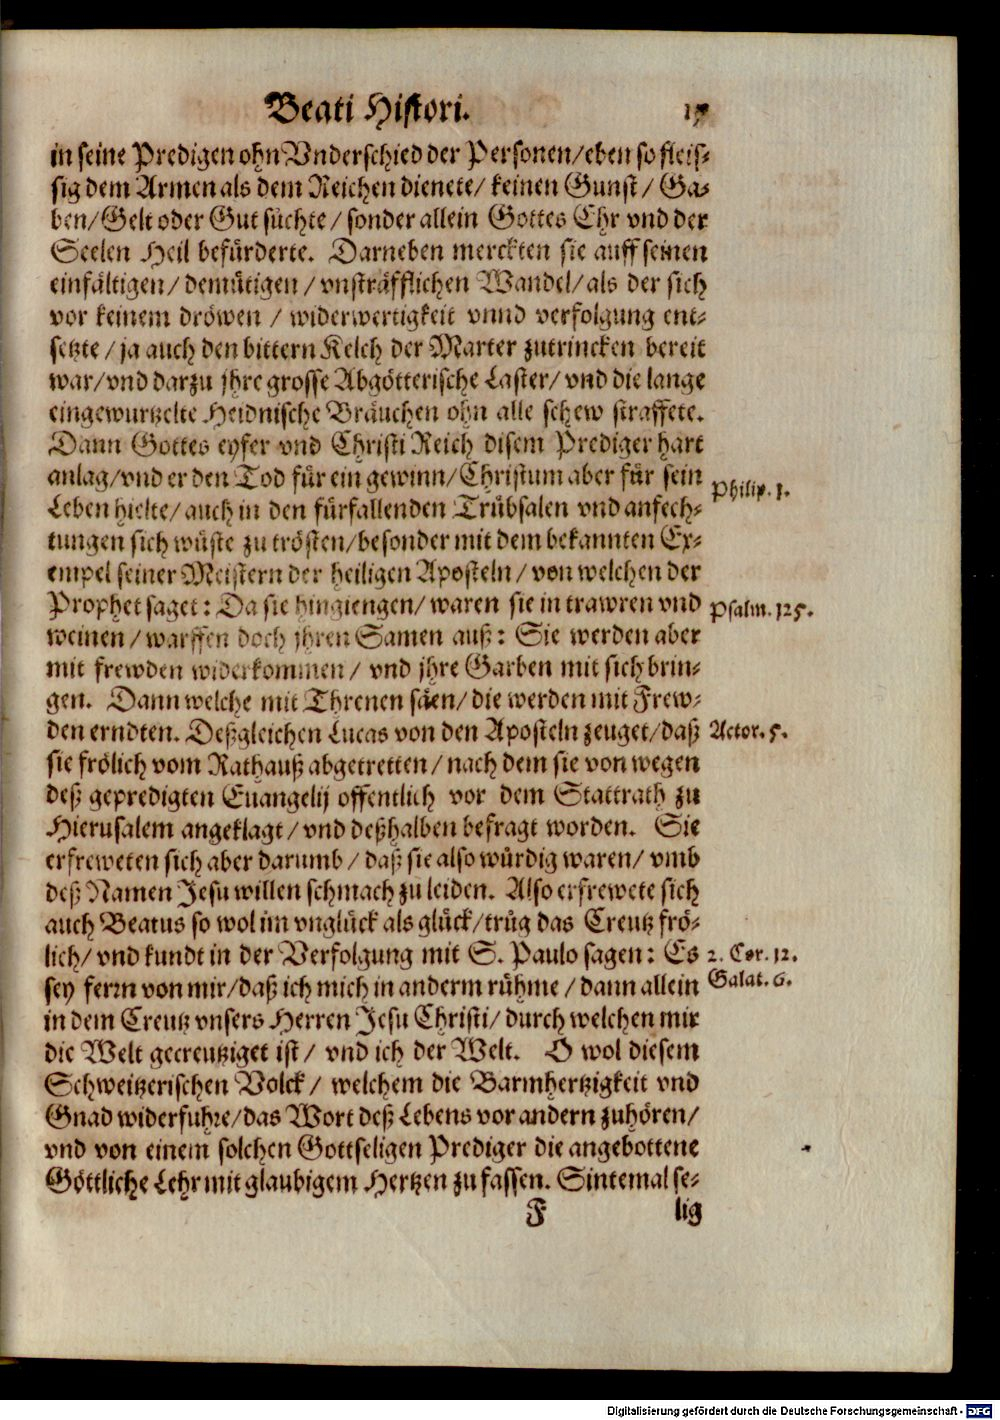 Beati Histori. 17
in seine Predigen ohn Vnderschied der Personen/eben so fleis-
sig dem Armen als dem Reichen dienete/ keinen Gunst/ Ga-
ben/Gelt oder Gut süchte/ sonder allein Gottes Ehr vnd der
Seelen Heil befürderte. Darneben merckten sie auff seinen
einfältigen/ demütigen/ vnsträfflichen Wandel/ als der sich
vor keinem dröwen / widerwertigkeit vnnd verfolgung ent-
setzte/ ja auch den bittern Kelch der Marter zutrincken bereit
war/vnd darzu jhre grosse Abgötterische Laster/ vnd die lange
eingewurtzelte Heidnische Bräuchen ohn alle schew straffete.
Dann Gottes eyfer vnd Christi Reich disem Prediger hart
anlag/vnd er den Tod für ein gewinn/Christum aber für sein
Philip. 1.
Leben hielte/ auch in den fürfallenden Trübsalen vnd anfech-
tungen sich wüste zu trösten/besonder mit dem bekannten Ex-
empel seiner Meistern der heiligen Aposteln/ von welchen der
Prophet saget: Da sie hingiengen/ waren sie in trawren vnd
Psalm. 125.
weinen / warffen doch jhren Samen auß: Sie werden aber
mit frewden widerkommen/ vnd jhre Garben mit sich brin-
gen. Dann welche mit Threnen säen/ die werden mit Frew-
den erndten. Deßgleichen Lucas von den Aposteln zeuget/daß
Actor. 5.
sie frölich vom Rathauß abgetretten/ nach dem sie von wegen
deß gepredigten Euangelij offentlich vor dem Stattrath zu
Hierusalem angeklagt/ vnd deßhalben befragt worden. Sie
erfreweten sich aber darumb/ daß sie also würdig waren/ vmb
deß Namen Jesu willen schmach zu leiden. Also erfrewete sich
auch Beatus so wol im vnglück als glück/trüg das Creutz frö-
lich/ vnd kundt in der Verfolgung mit S. Paulo sagen: Es
2. Cor. 12.
Galat. 6.
sey ferrn von mir/daß ich mich in anderm rühme/ dann allein
in dem Creutz vnsers Herren Jesu Christi/ durch welchen mir
die Welt gecreutziget ist/ vnd ich der Welt. O wol diesem
Schweitzerischen Volck/ welchem die Barmhertzigkeit vnd
Gnad widerfuhre/das Wort deß Lebens vor andern zuhören/
vnd von einem solchen Gottseligen Prediger die angebottene
Göttliche Lehr mit glaubigem Hertzen zu fassen. Sintemal se-
F lig
Digitalisierung gefördert durch die Deutsche Forschungsgemeinschaft - DFG